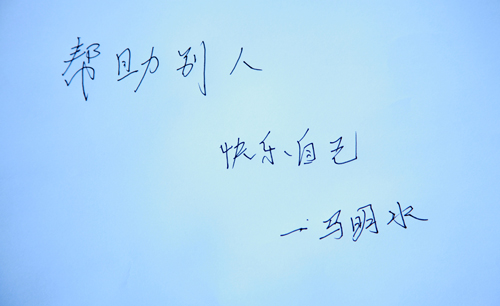 帮助别人
快乐自己
—马明水